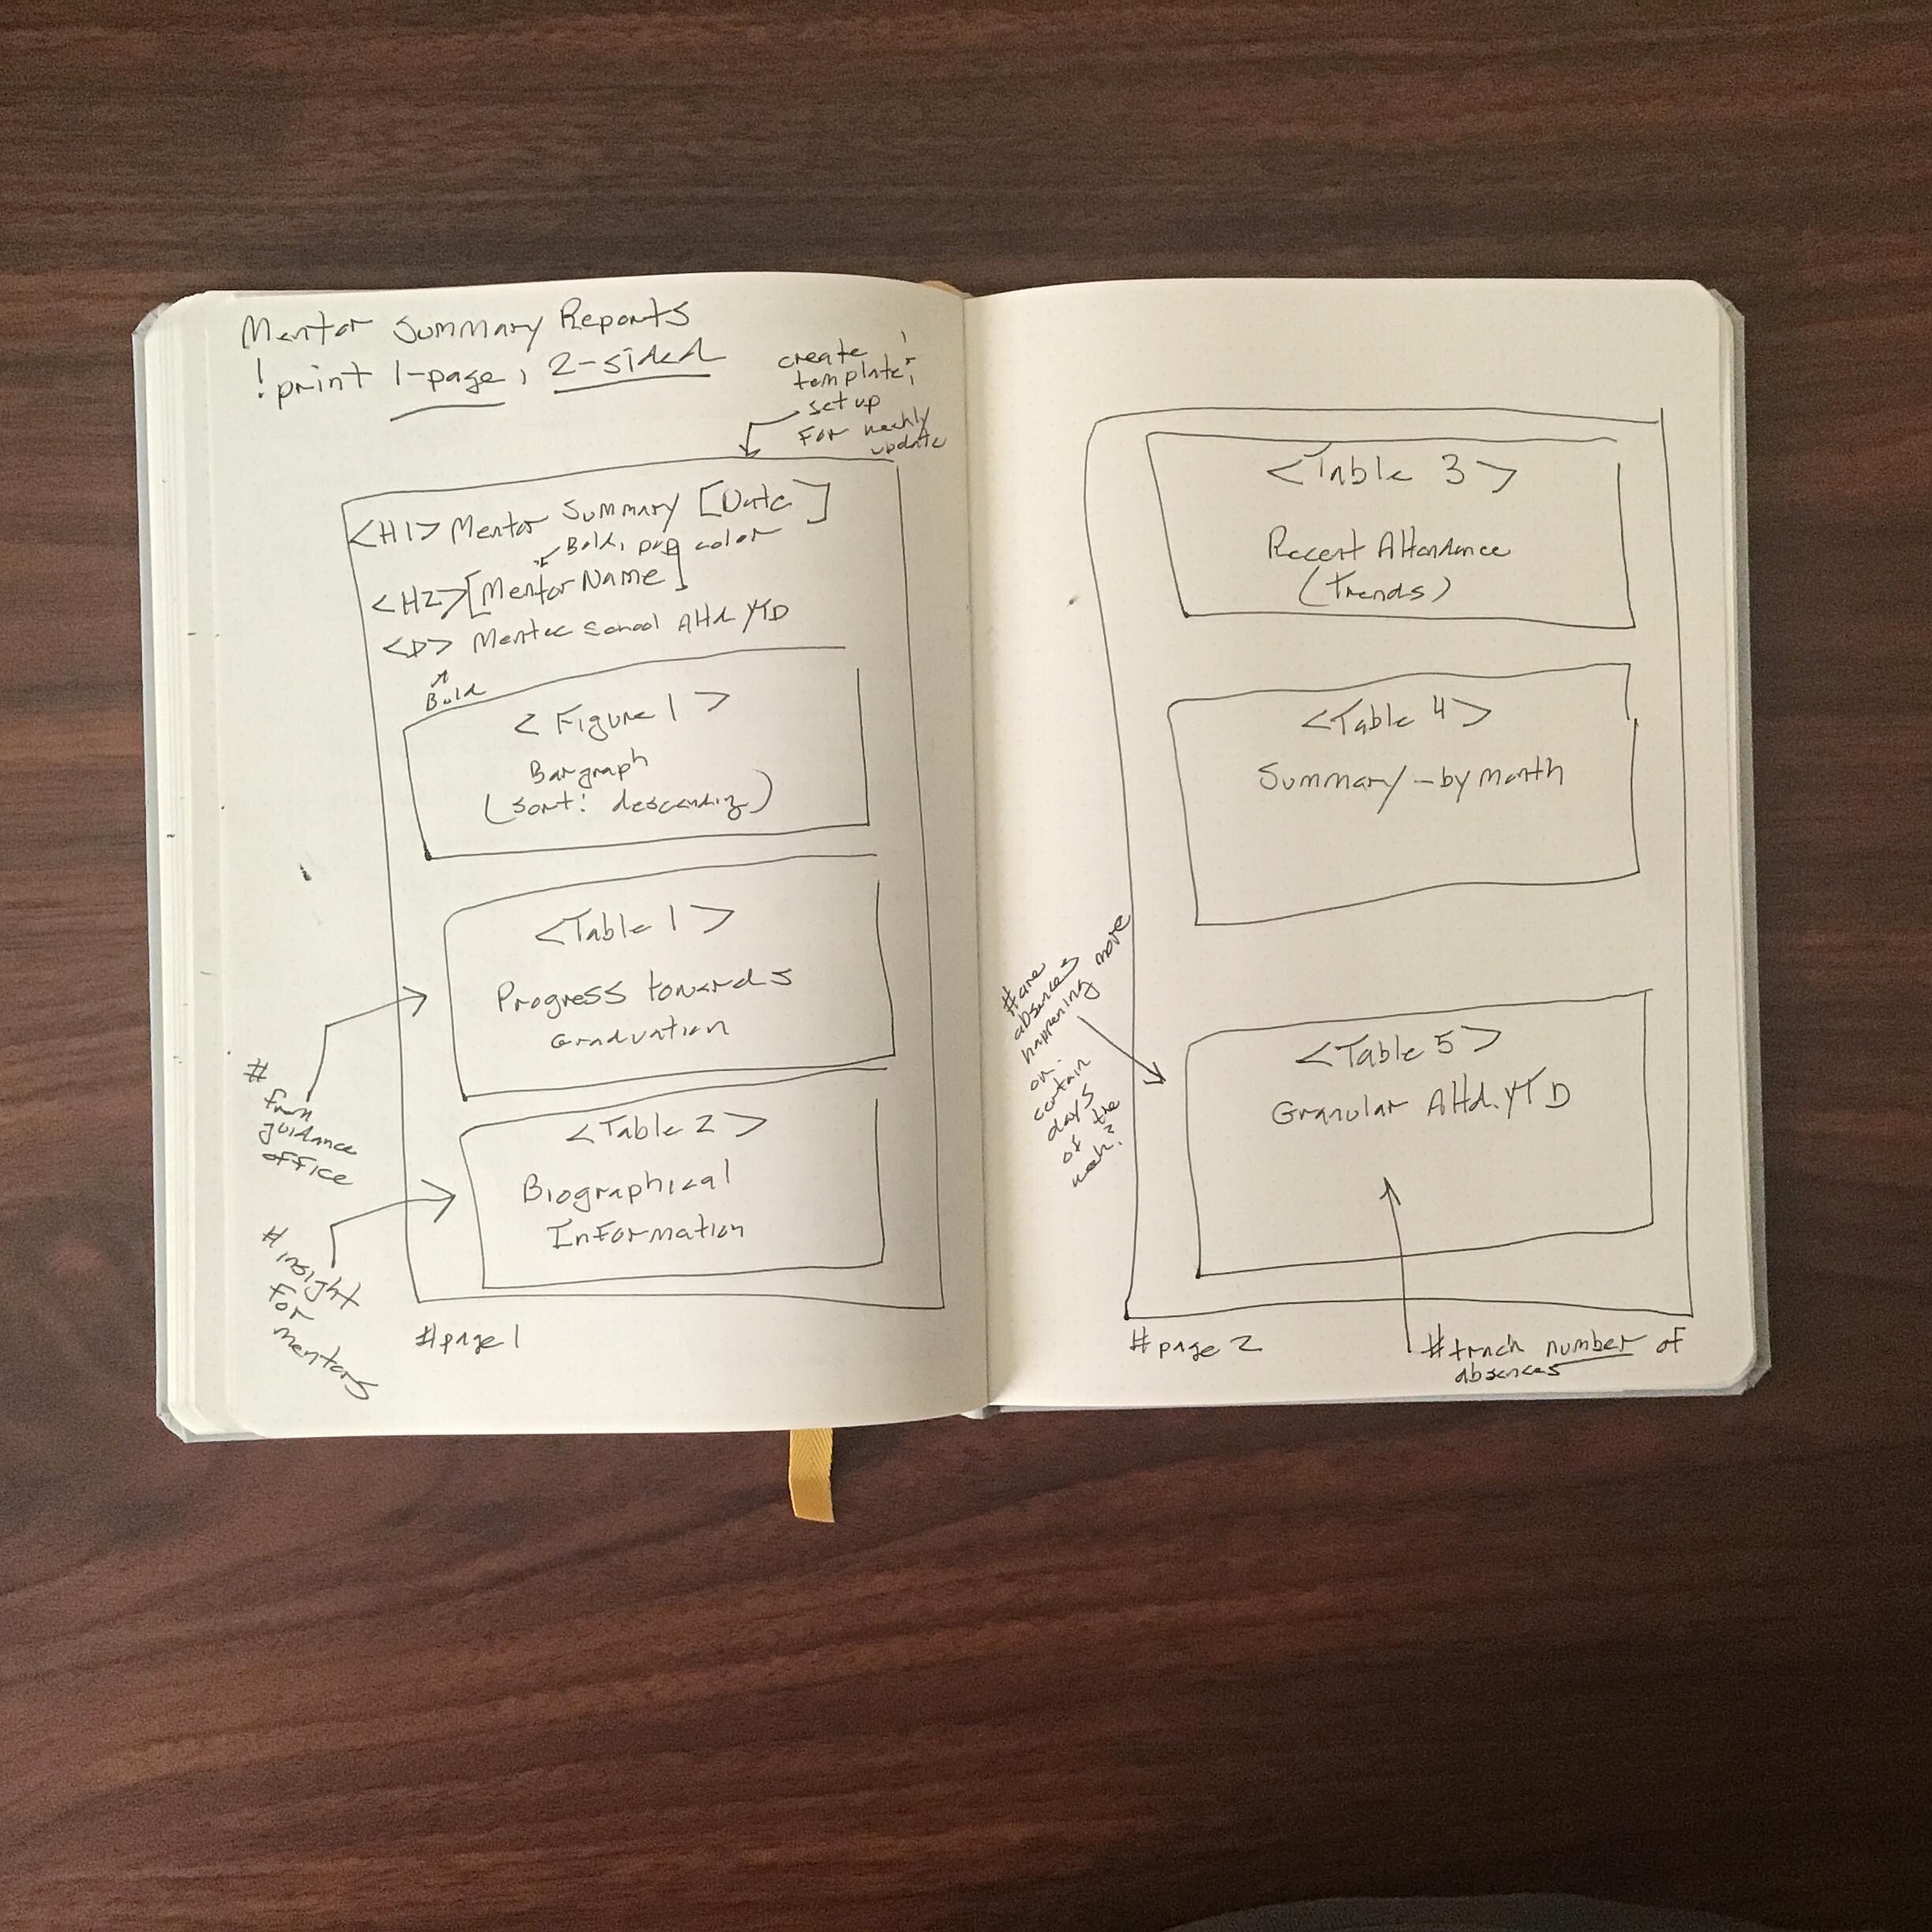 Mentor Summary Reports
! print 1-page, 2-sided
create
template;
set up
for weekly
update
<H1> Mentor Summary [Date]
Bold, pop color
<H2> [Mentor Name]
<P> Mentee School Attd. YTD
Bold
<Figure 1>
Bargraph
(sort: descending)
<Table 1>
Progress towards
Graduation
# from
guidance
office
<Table 2>
Biographical
Information
# insight
for
mentors
#page 1
<Table 3>
Recent Attendance
(trends)
<Table 4>
Summary - by month
#are
absences
happening more
on
certain
days
of the
week?
<Table 5>
Granular Attd. YTD
#page 2
#track number of
absences